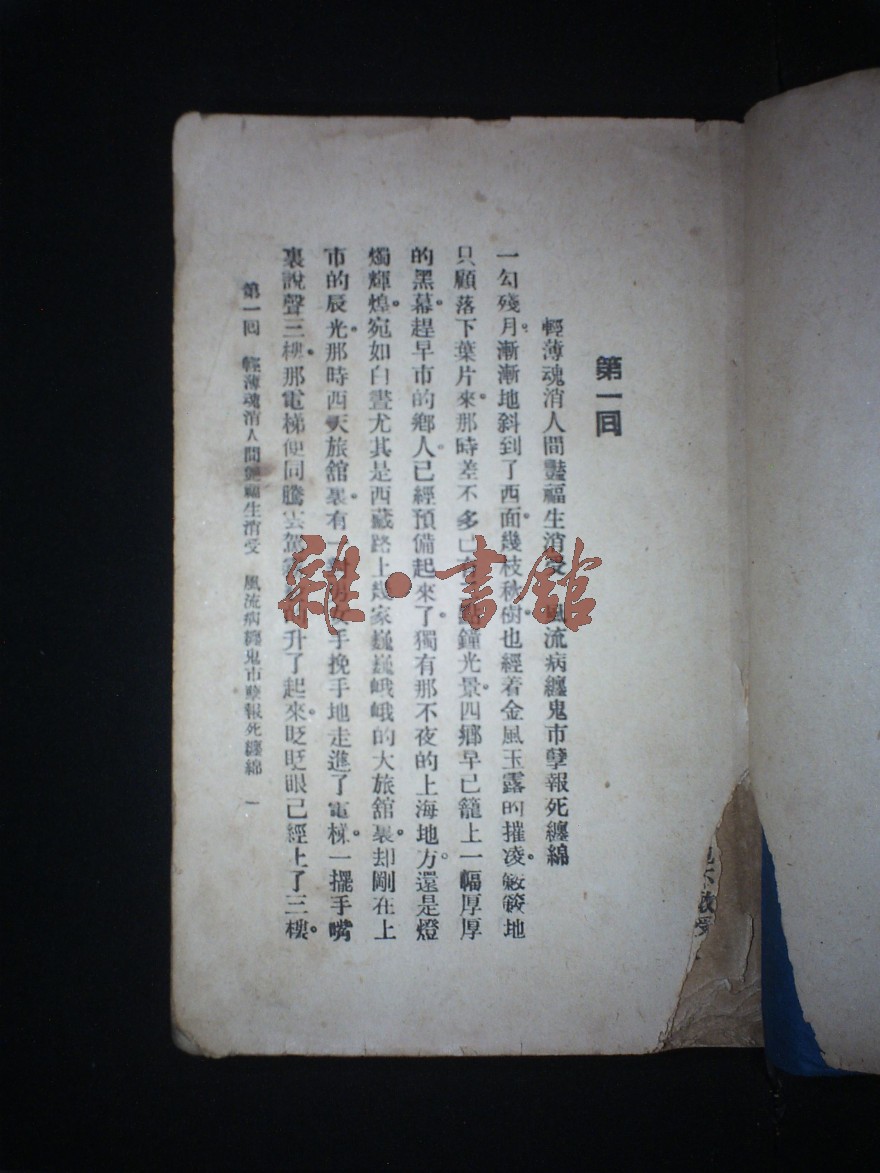 第一回
輕薄魂消人間豔福生消受 風流病纏鬼市孽報死纏綿
一勾殘月。漸漸地斜到了西面。幾枝秋樹。也經着金風玉露的摧凌。簌簌地
只顧落下葉片來。那時差不多已有 點鐘光景。四鄉早已籠上一幅厚厚
的黑幕。趕早市的鄉人。已經預備起來了。獨有那不夜的上海地方。還是燈
燭輝煌。宛如白晝。尤其是西藏路上幾家巍巍峨峨的大旅舘裏。却剛在上
市的辰光。那時西天旅舘裏。有一對男女手挽手地走進了電梯。一擺手嘴
裏說聲三樓。那電梯便同騰雲駕 升了起來。眨眨眼已經上了三樓。
第一回 輕薄魂消人間豔福生消受 風流病纏鬼市孽報死纏綿 一
雜·書舘